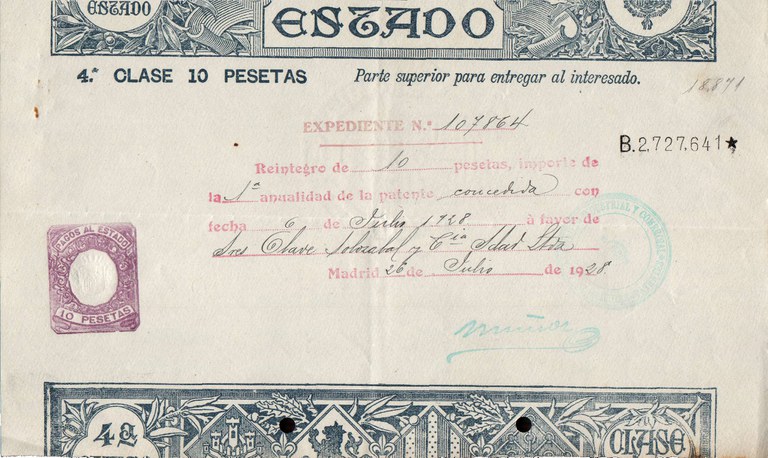 ESTADO
ESTADO
4.ª CLASE 10 PESETAS Parte superior para entregar al interesado.
18,871
EXPEDIENTE N.º 107864
B.2.727.641★
Reintegro de 10 pesetas, importe de
la 1ª anualidad de la patente concedida con
fecha 6 de Julio 1928 à favor de
Sres Clave Solozabal y Cia Sdad Ltda
Madrid 26 de Julio de 1928
PAGOS AL ESTADO
10 PESETAS
Muñoz
4ª
CLASE